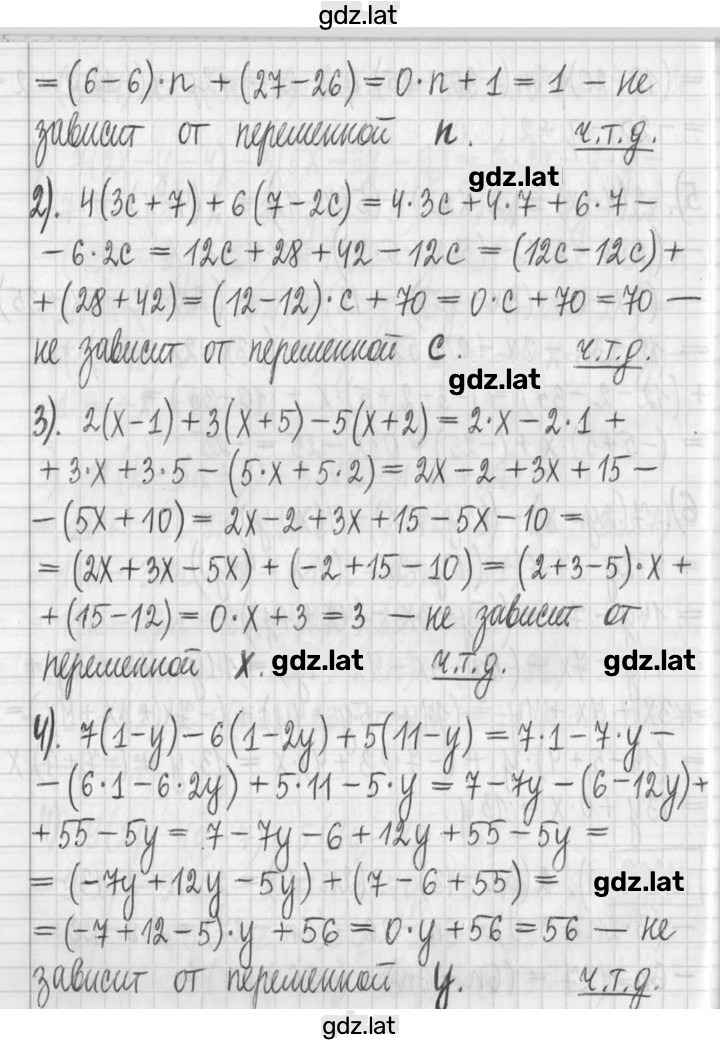 gdz.lat
= (6-6)·n + (27-26) = 0·n + 1 = 1 – не
зависит от переменной n. ч.т.д.
gdz.lat
2). 4(3c+7)+6(7-2c) = 4·3c+4·7+6·7-
-6·2c = 12c+28+42-12c = (12c-12c)+
+(28+42) = (12-12)·c + 70 = 0·c + 70 = 70 –
не зависит от переменной c. ч.т.д.
gdz.lat
3). 2(x-1)+3(x+5)-5(x+2) = 2·x-2·1+
+3·x+3·5-(5·x+5·2) = 2x-2+3x+15-
-(5x+10) = 2x-2+3x+15-5x-10 =
= (2x+3x-5x)+(-2+15-10) = (2+3-5)·x+
+(15-12) = 0·x+3 = 3 – не зависит от
переменной x. gdz.lat ч.т.д. gdz.lat
4). 7(1-y)-6(1-2y)+5(11-y) = 7·1-7·y-
-(6·1-6·2y)+5·11-5·y = 7-7y-(6-12y)+
+55-5y = 7-7y-6+12y+55-5y =
= (-7y+12y-5y)+(7-6+55) = gdz.lat
= (-7+12-5)·y + 56 = 0·y+56 = 56 – не
зависит от переменной y. ч.т.д.
gdz.lat